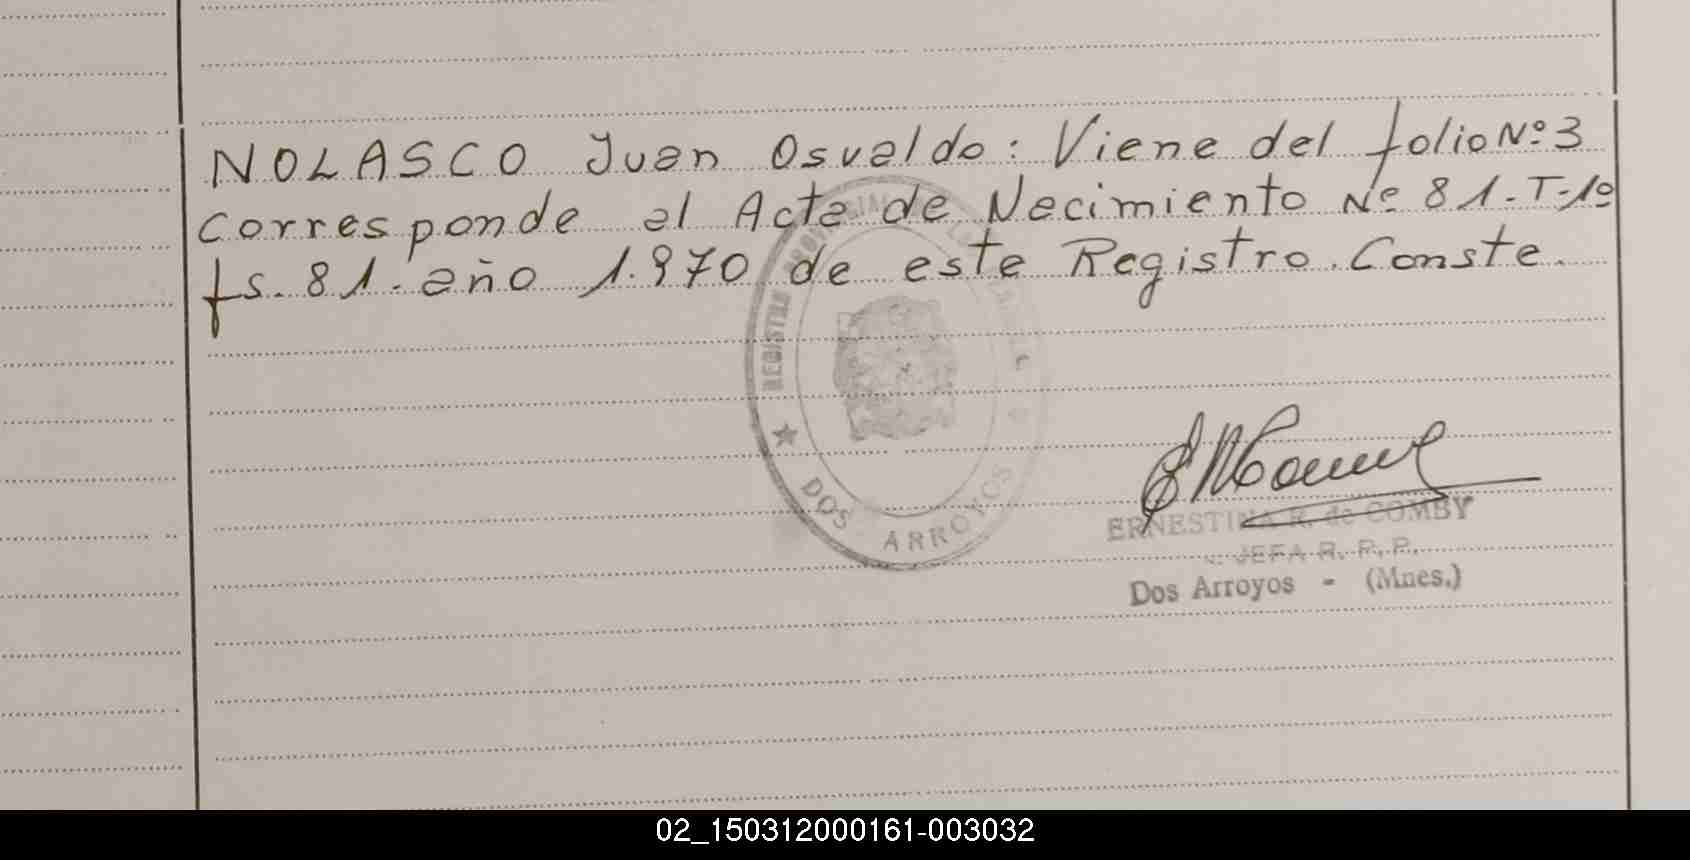 NOLASCO Juan Osvaldo: Viene del folio Nº 3
corresponde al Acta de Nacimiento Nº 81.T-1º
fs. 81. año 1.970 de este Registro. Conste.
REGISTRO
DOS ARROYOS
ERNESTINA R. de COMBY
JEFA R. P. P.
Dos Arroyos - (Mnes.)
02_150312000161-003032